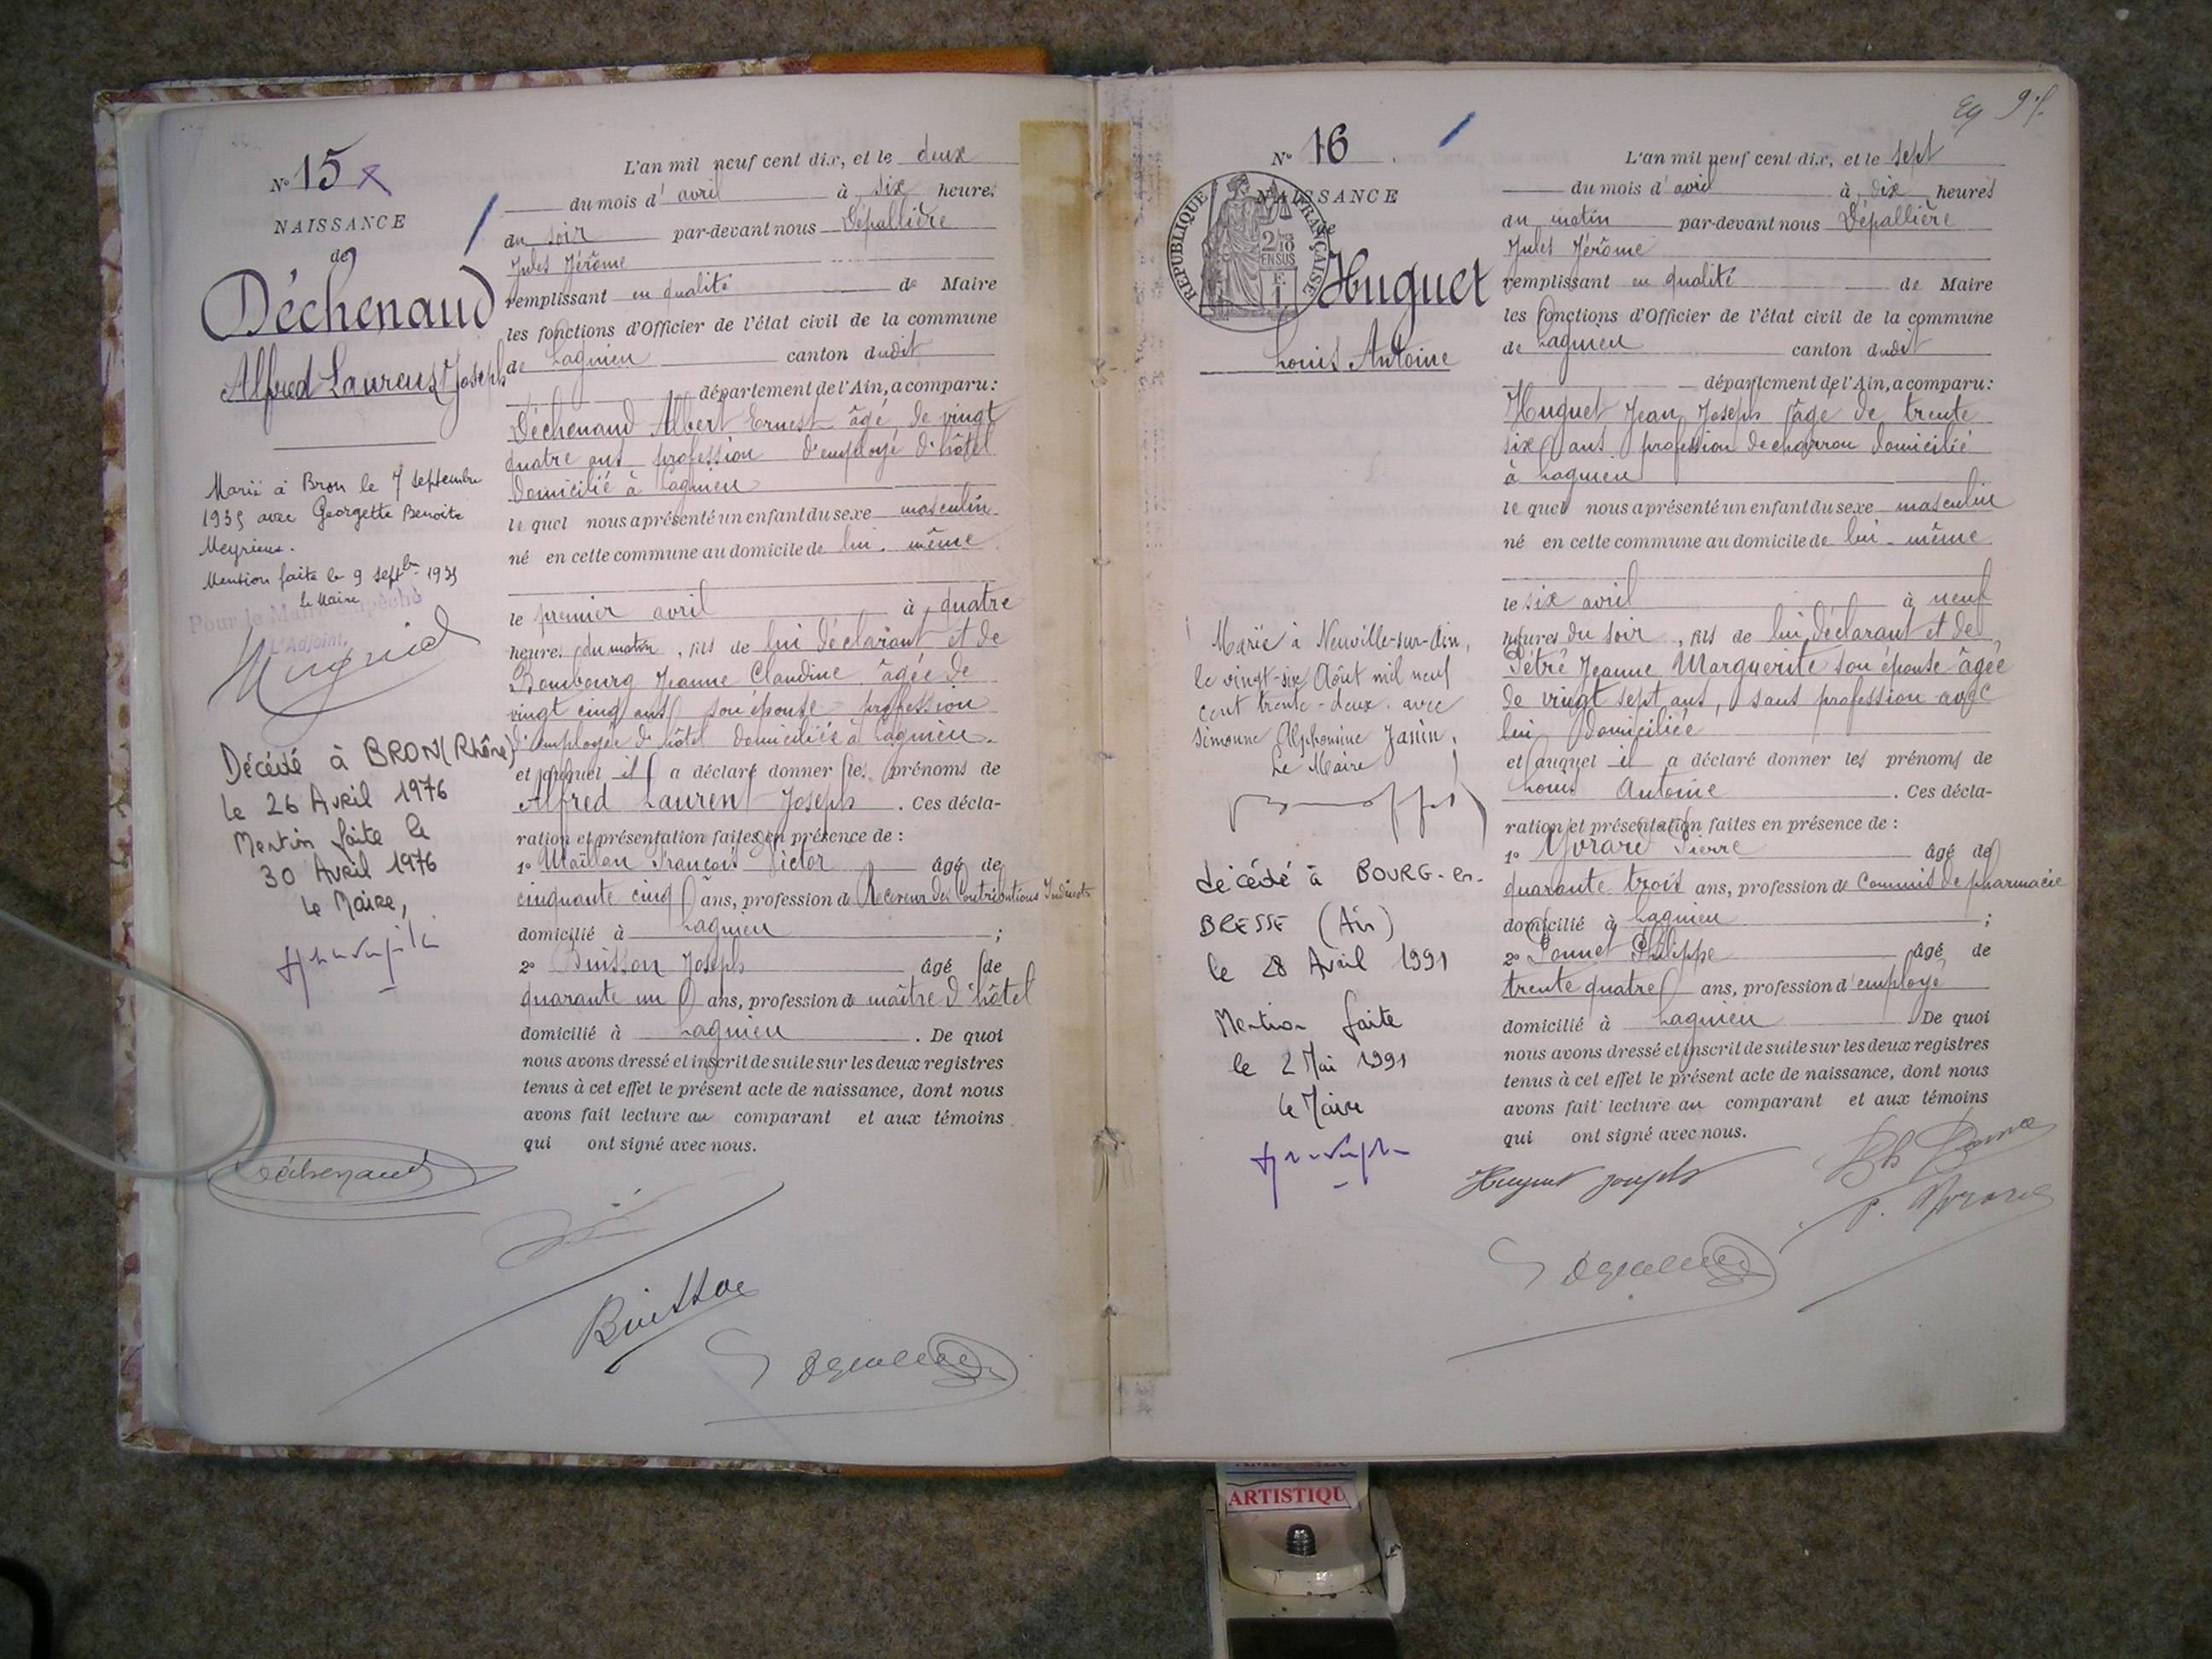 N° 15
NAISSANCE
de
Déchenaud
Alfred Laurent Joseph
Marié à Bron le 7 septembre
1935 avec Georgette Benoite
Meyrieux.
Mention faite le 9 septbre 1935
le Maire
Pour le Maire empêché
L'Adjoint,
Décédé à BRON (Rhône)
le 26 Avril 1976
Mention faite le
30 Avril 1976
Le Maire,
L'an mil neuf cent dix, et le deux
du mois d' avril à six heures
du soir par-devant nous Dépallière
Jules Jérôme
remplissant en qualité de Maire
les fonctions d'Officier de l'état civil de la commune
de Lagnieu canton dudit
département de l'Ain, a comparu:
Déchenaud Albert Ernest âgé de vingt
quatre ans profession d'employé d'hôtel
domicilié à Lagnieu
le quel nous a présenté un enfant du sexe masculin
né en cette commune au domicile de lui-même
le premier avril à quatre
heures du matin, fils de lui déclarant et de
Bombourg Jeanne Claudine âgée de
vingt cinq ans son épouse profession
d'employée d'hôtel domiciliée à Lagnieu.
et auquel il a déclaré donner les prénoms de
Alfred Laurent Joseph. Ces décla-
ration et présentation faites en présence de :
1° Maillan François Victor âgé de
cinquante cinq ans, profession de Receveur des Contributions Indirects
domicilié à Lagnieu ;
2° Buisson Joseph âgé de
quarante un ans, profession de maître d'hôtel
domicilié à Lagnieu. De quoi
nous avons dressé et inscrit de suite sur les deux registres
tenus à cet effet le présent acte de naissance, dont nous
avons fait lecture au comparant et aux témoins
qui ont signé avec nous.
Déchenaud
Buisson
Eq 9 f.
N° 16
NAISSANCE
de
RÉPUBLIQUE FRANÇAISE
2/10 EN SUS
F. 1
Huguet
Louis Antoine
Marié à Neuville-sur-Ain,
le vingt-six Août mil neuf
cent trente-deux avec
Simonne Alphonsine Janin.
Le Maire
décédé à BOURG-en-
BRESSE (Ain)
le 28 Avril 1991
Mention faite
le 2 Mai 1991
Le Maire
L'an mil neuf cent dix, et le sept
du mois d' avril à dix heures
du matin par-devant nous Dépallière
Jules Jérôme
remplissant en qualité de Maire
les fonctions d'Officier de l'état civil de la commune
de Lagnieu canton dudit
département de l'Ain, a comparu:
Huguet Jean Joseph âgé de trente
six ans profession de charron domicilié
à Lagnieu
le quel nous a présenté un enfant du sexe masculin
né en cette commune au domicile de lui-même
le six avril à neuf
heures du soir, fils de lui déclarant et de
Pétré Jeanne Marguerite son épouse âgée
de vingt sept ans, sans profession avec
lui domiciliée
et auquel il a déclaré donner les prénoms de
Louis Antoine. Ces décla-
ration et présentation faites en présence de :
1° Yvrard Pierre âgé de
quarante trois ans, profession de Commis de pharmacie
domicilié à Lagnieu ;
2° Ponnet Philippe âgé de
trente quatre ans, profession d'employé
domicilié à Lagnieu. De quoi
nous avons dressé et inscrit de suite sur les deux registres
tenus à cet effet le présent acte de naissance, dont nous
avons fait lecture au comparant et aux témoins
qui ont signé avec nous.
Huguet Joseph
ARTISTIQU